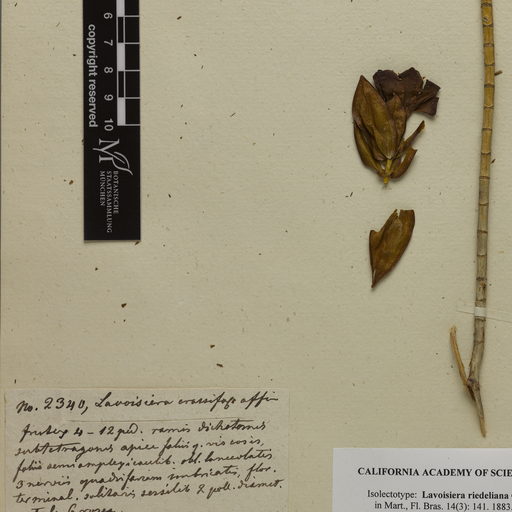 6
7
8
9
10
copyright reserved
BOTANISCHE
STAATSSAMMLUNG
MÜNCHEN
No. 2340, Lavoisiera crassifol. affin
frutex 4 - 12 ped. ramis dichotomis
subtetragonis apice foliisq. viscosis,
foliis semiamplexicaulib. obl. lanceolatis
3 nerviis quadrifariam imbricatis, flor.
terminal. solitariis sessilib 2 poll. diamet.
CALIFORNIA ACADEMY OF SCIE
Isolectotype: Lavoisiera riedeliana
in Mart., Fl. Bras. 14(3): 141. 1883.